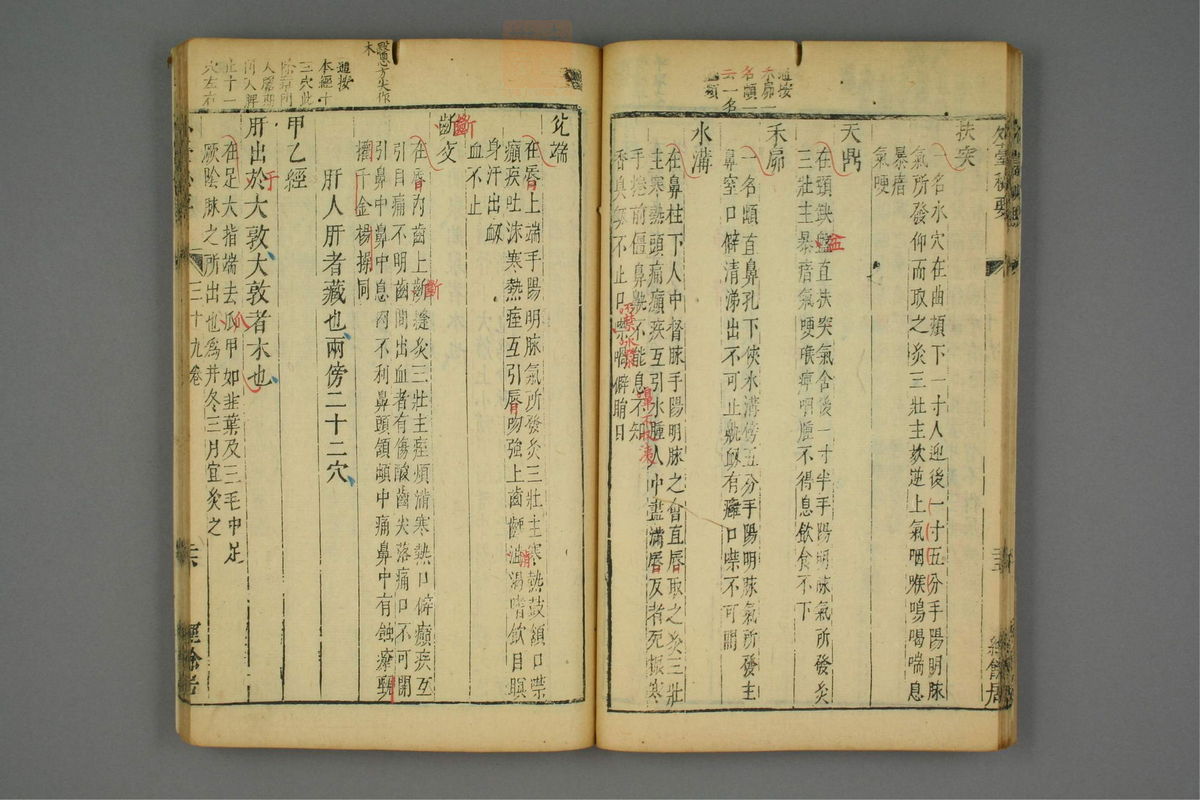 扶突
一名水穴在曲頰下一寸人迎後一寸五分手陽明脉
氣所發仰而取之灸三壯主欬逆上氣咽喉鳴喝喘息
暴瘖
氣哽
天鼎
在頸缺盤直扶突氣舍後一寸半手陽明脉氣所發灸
三壯主暴瘖氣哽喉痺咽腫不得息飲食不下
禾窌
一名頗直鼻孔下俠水溝傍五分手陽明脉氣所發主
鼻窒口僻清涕出不可止鼽衂有癰口噤不可開
水溝
在鼻柱下人中督脉手陽明脉之會直唇取之灸三壯
主寒熱頭痛癲疾互引水腫人中盡滿唇反者死振寒
手捲前僵鼻鼽不能息不知
香臭衂不止口噤喎僻睊目
兊端
在唇上端手陽明脉氣所發灸三壯主寒熱鼓頷口噤
癲疾吐沫寒熱痓互引唇吻強上齒齲渴嗜飲目瞑
身汗出衂
血不止
齗交
在唇內齒上齗縫灸三壯主痓煩滿寒熱口僻癲疾互
引目痛不明齒間出血者有傷酸齒尖落痛口不可開
引鼻中鼻中息肉不利鼻頭頷頞中痛鼻中有蝕瘡
千金楊操同
肝人肝者藏也兩傍二十二穴
甲乙經
肝出於大敦大敦者木也
在足大指端去爪甲如韭葉及三毛中足
厥陰脉之所出也為井冬三月宜灸之
三十九卷